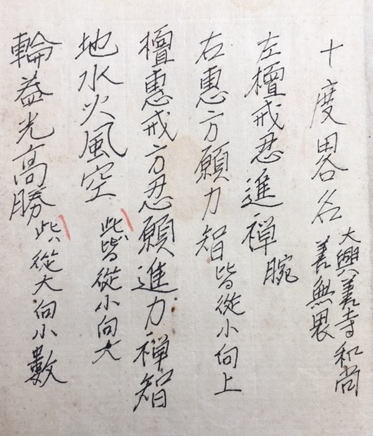 十度畧名 大興善寺和尚
善無畏
左檀戒忍進禅腕
右惠方願力智皆從小向上
檀惠戒方忍願進力禅智
地水火風空 此皆從小向大
輪蓋光高勝 此從大向小數